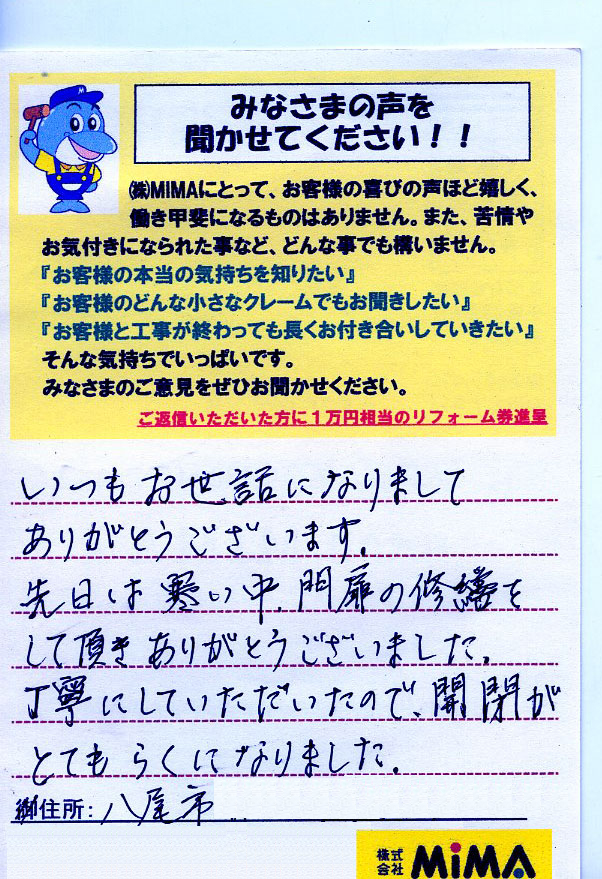 M
みなさまの声を
聞かせてください！！
㈱MIMAにとって、お客様の喜びの声ほど嬉しく、
働き甲斐になるものはありません。また、苦情や
お気付きになられた事など、どんな事でも構いません。
『お客様の本当の気持ちを知りたい』
『お客様のどんな小さなクレームでもお聞きしたい』
『お客様と工事が終わっても長くお付き合いしていきたい』
そんな気持ちでいっぱいです。
みなさまのご意見をぜひお聞かせください。
ご返信いただいた方に１万円相当のリフォーム券進呈
いつもお世話になりまして
ありがとうございます。
先日は寒い中、門扉の修繕を
して頂きありがとうございました。
丁寧にしていただいたので、開閉が
とてもらくになりました。
御住所：八尾市
株式会社 MiMA